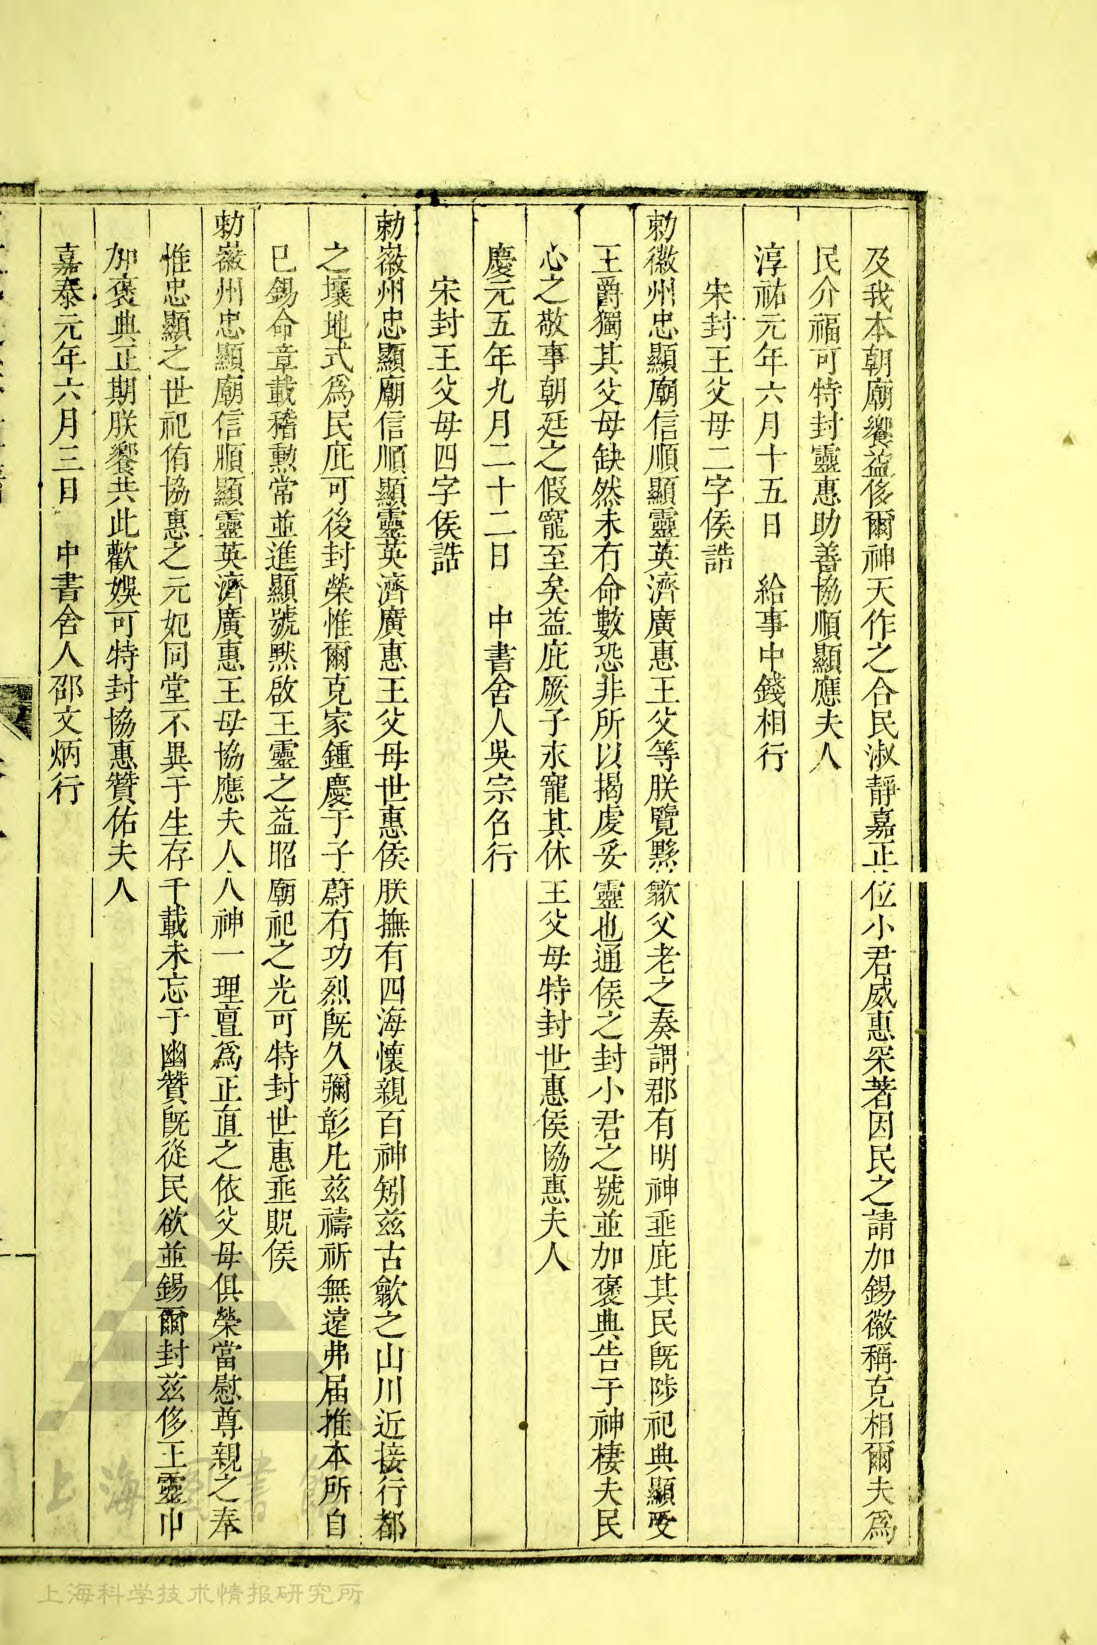 及我本朝廟饗益侈爾神天作之合民淑靜嘉正位小君威惠采著因民之請加錫徽稱克相爾夫爲
民介福可特封靈惠助善協順顯應夫人
淳祐元年六月十五日　給事中錢相行
宋封王父母二字侯誥
勅徽州忠顯廟信順顯靈英濟廣惠王父等朕覽黟歙父老之奏謂郡有明神垂庇其民旣陟祀典顯受
王爵獨其父母缺然未有命數恐非所以揭虔妥靈也通侯之封小君之號並加褒典告于神棲夫民
心之敬事朝廷之假寵至矣益庇厥子永寵其休　王父母特封世惠侯協惠夫人
慶元五年九月二十二日　中書舍人吳宗名行
宋封王父母四字侯誥
勅徽州忠顯廟信順顯靈英濟廣惠王父母世惠侯朕撫有四海懷親百神矧茲古歙之山川近接行都
之壤地式爲民庇可後封榮惟爾克家鍾慶于子蔚有功烈旣久彌彰凡茲禱祈無遠弗届推本所自
已錫命章載稽勲常並進顯號黙啟王靈之益昭廟祀之光可特封世惠垂貺侯
勅徽州忠顯廟信順顯靈英濟廣惠王母協應夫人人神一理亶爲正直之依父母俱榮當慰尊親之奉
惟忠顯之世祀侑協惠之元妃同堂不異于生存千載未忘于幽贊旣從民欲並錫爾封茲侈王靈申
加褒典正期朕饗共此歡娛可特封協惠贊佑夫人
嘉泰元年六月三日　中書舍人邵文炳行
上海圖書館
上海科学技术情报研究所